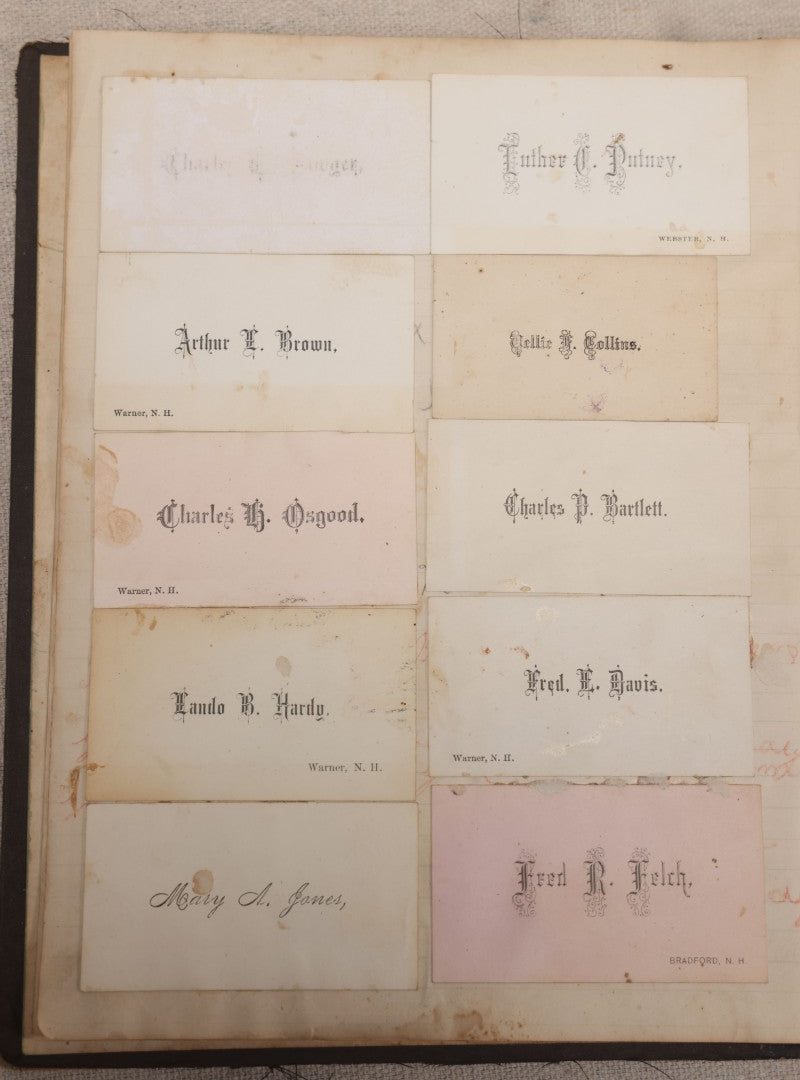 Charles
Luther C. Putney.
WEBSTER, N. H.
Arthur E. Brown.
Warner, N. H.
Nellie F. Collins.
Charles H. Osgood.
Warner, N. H.
Charles P. Bartlett.
Lando B. Hardy.
Warner, N. H.
Fred. E. Davis.
Warner, N. H.
Mary A. Jones,
Fred R. Felch.
BRADFORD, N. H.